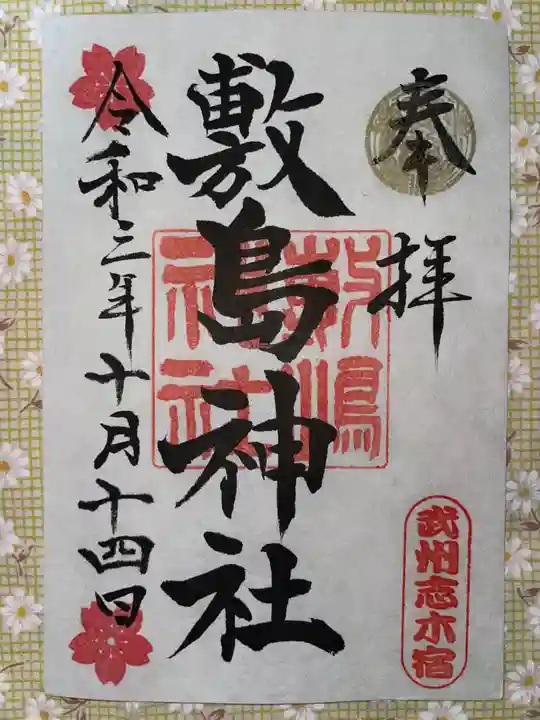 奉拝
敷島神社
令和三年十月十四日
武州志木宿